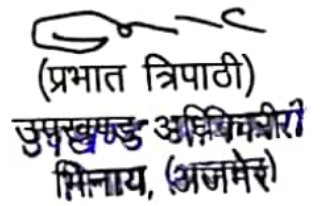 (प्रभात त्रिपाठी)
उपखण्ड अधिकारी
भिनाय, (अजमेर)